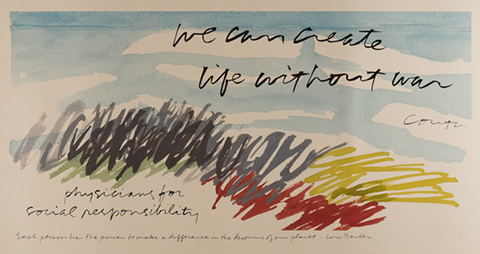 we can create
life without war
Corita
physicians for
social responsibility
Each person has the power to make a difference in the destiny of our planet - Lois Barber